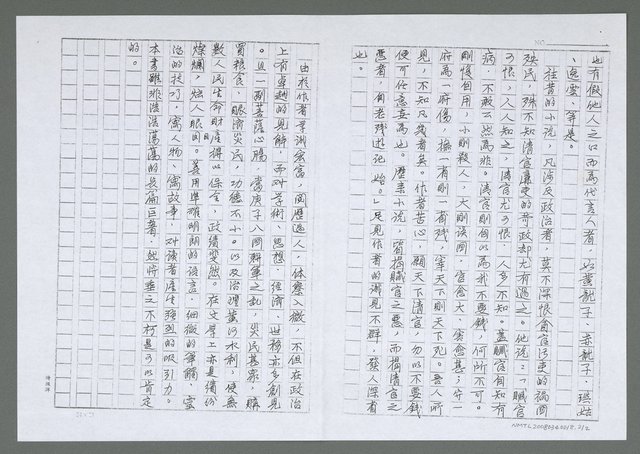 也有假他人之口而為代言人者，如黃龍子、赤龍子、璵姑
、逸雲、等是。
往昔的小說，凡涉及政治者，莫不深恨貪官污吏的禍國
殃民，殊不知清官廉吏的苛政却尤有過之。他說：「贓官
可恨，人人知之，清官尤可恨，人多不知。蓋贓官自知有
病，不敢公然為非。清官則自以為我不要錢，何所不可。
剛愎自用，小則殺人，大則誤國，官愈大，害愈甚；守一
府為一府傷，撫一省則一省殘，宰天下則天下死。吾人所
見，不知凡幾者矣。作者苦心，願天下清官，勿以不要錢
便可任意妄為也。歷來小說，皆揭贓官之惡，而揭清官之
惡者，自老殘遊記始。」足見作者的清見不群，發人深省
也。
由於作者學識宏富，閱歷過人，體察入微，不但在政治
上有卓越的見解，而對學術、思想、經濟、世務亦多創見
。且一副菩薩心腸，當庚子八國聯軍之亂，災民甚眾，購
買糧食，賑濟災民，功德不小。以及治理黃河水利，使無
數人民生命財產得以保全，政績斐然。在文學上亦是繽紛
燦爛，炫人眼目。善用準確明朗的語言，細微的筆觸，靈
活的技巧，寫人物、寫故事，對讀者產生強烈的吸引力。
本書雖非浩浩蕩蕩的長篇巨著，然將垂之不朽是可以肯定
的。
NO.
NMTL20080340018 2/2